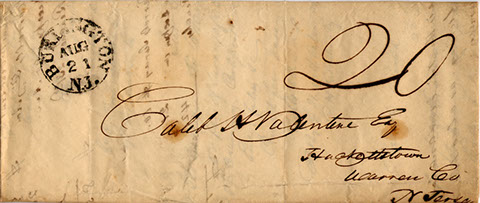 BURLINGTON
AUG
21
N.J.
20
Caleb H Valentine Esq
Hackettstown
Warren Co
N Jersey